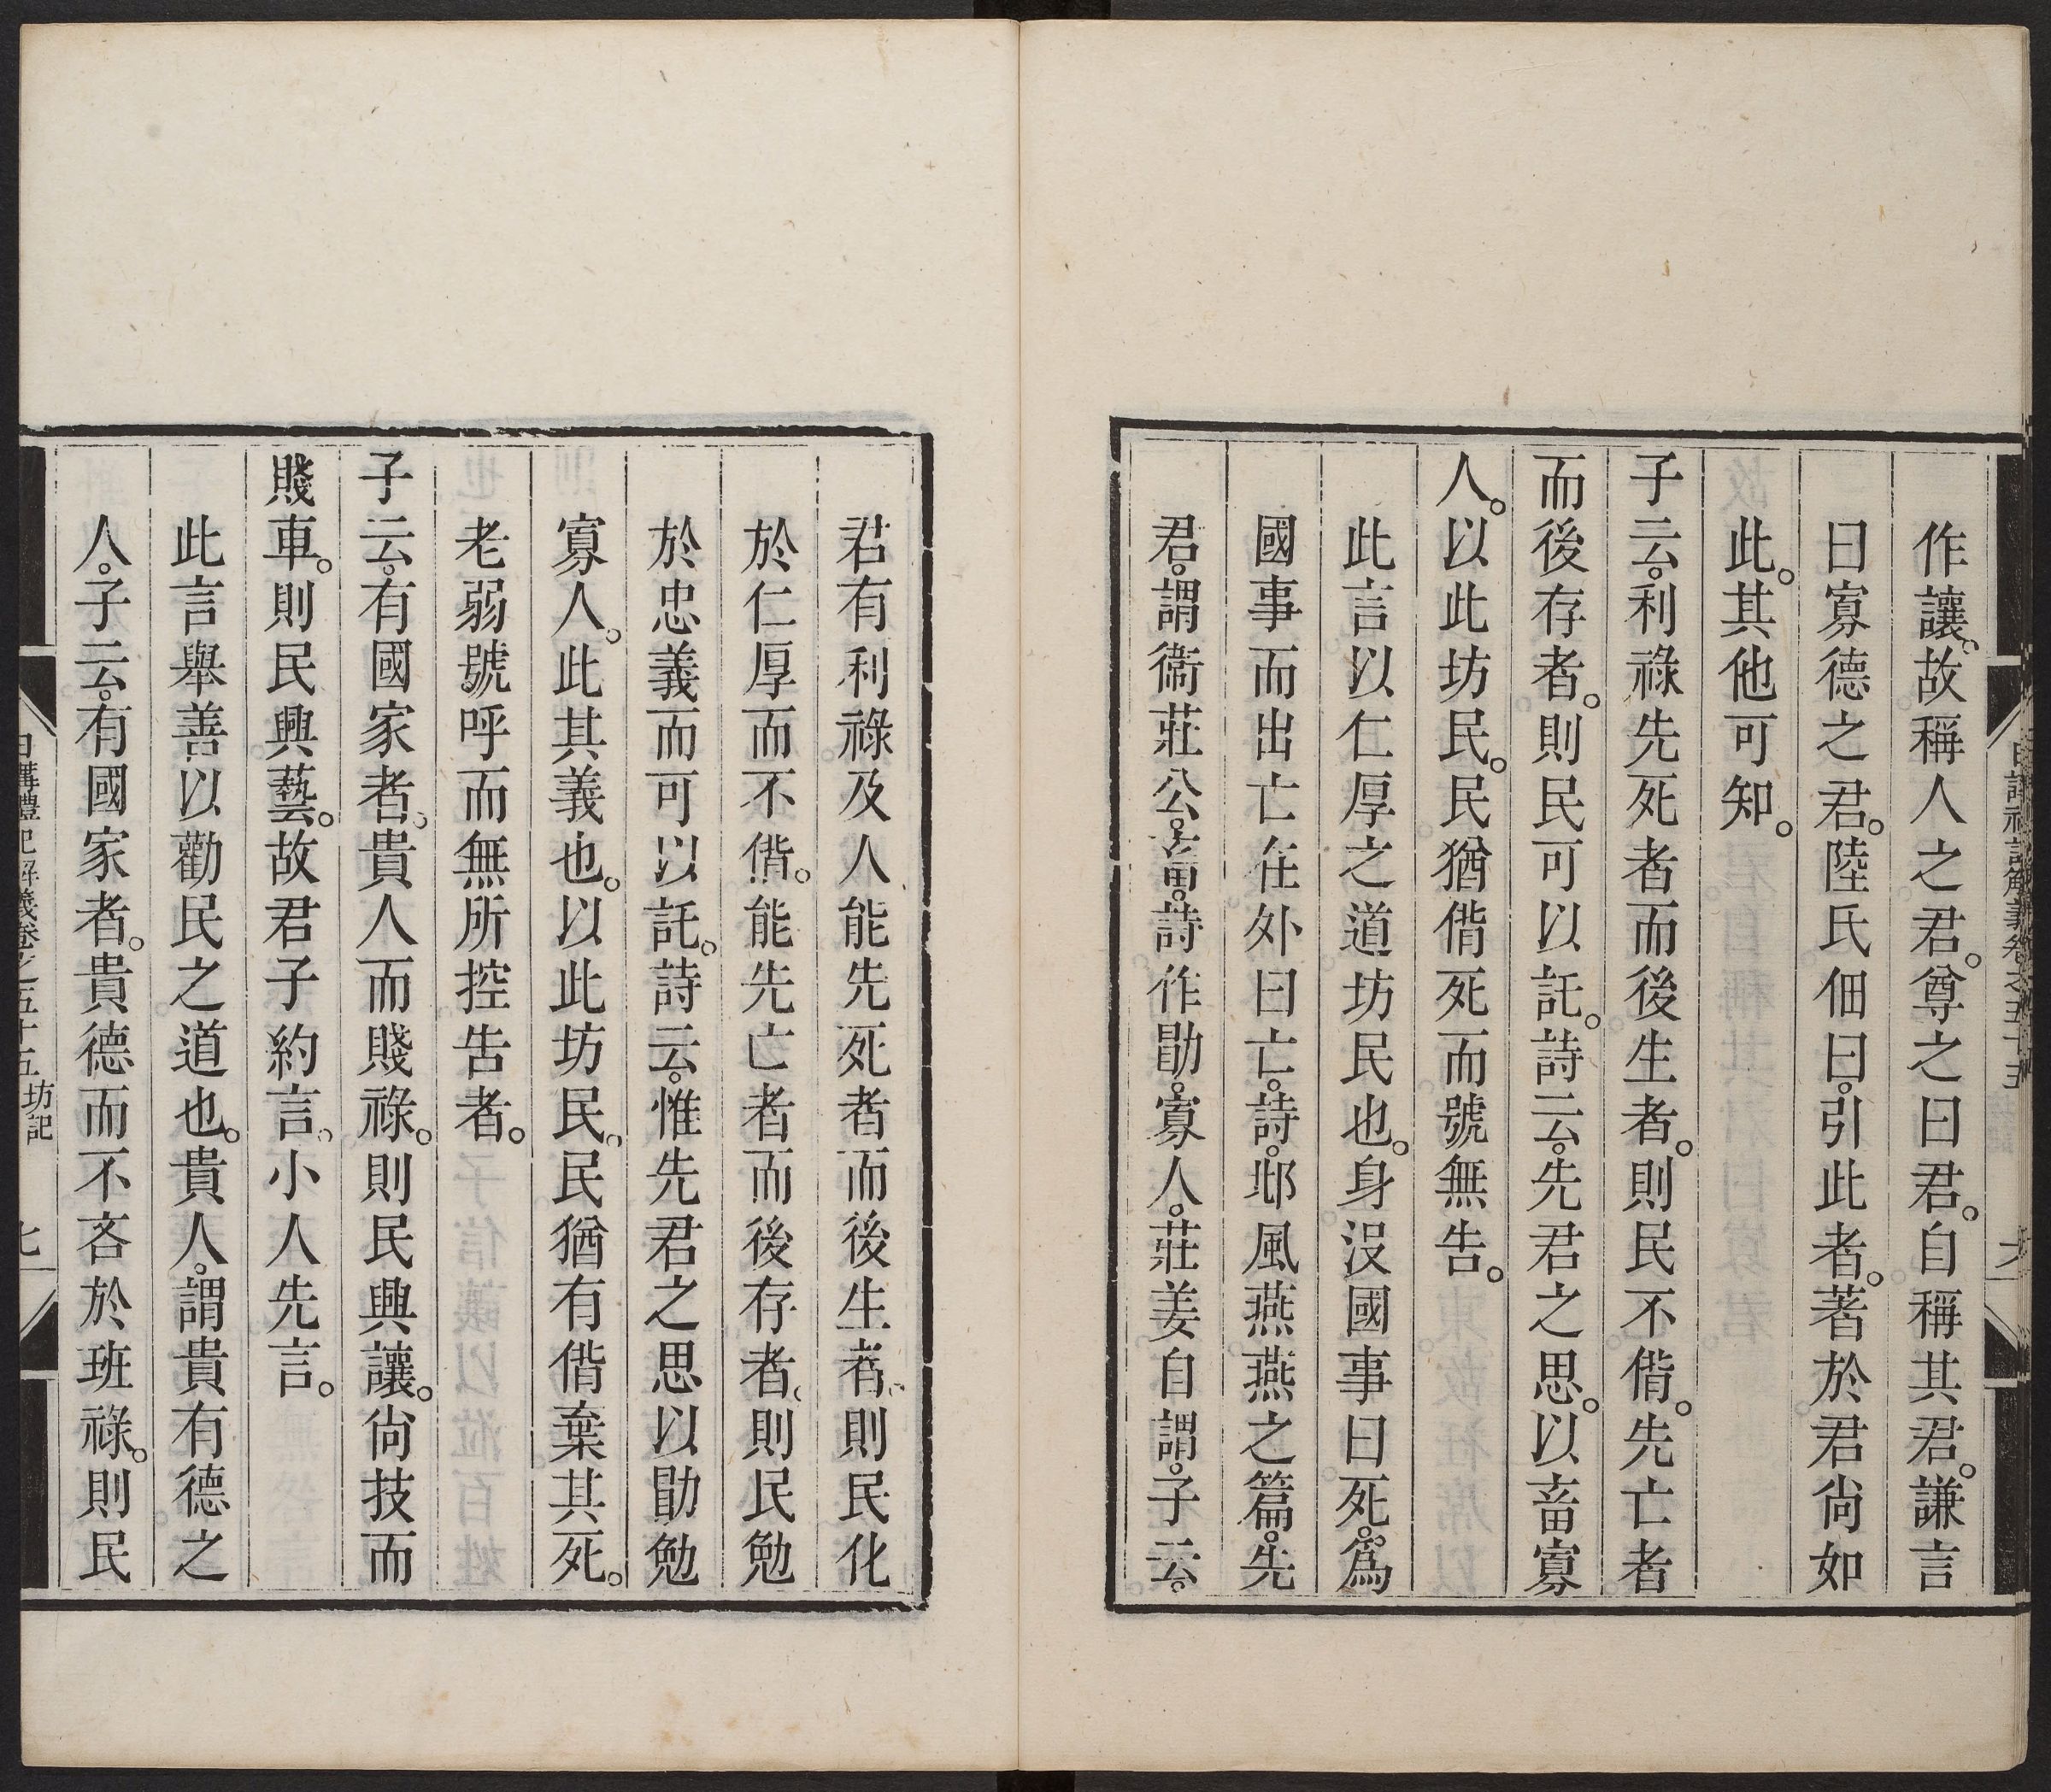 作讓。故稱人之君。尊之曰君。自稱其君。謙言
曰寡德之君。陸氏佃曰。引此者。著於君尙如
此。其他可知。
子云。利祿先死者而後生者。則民不偝。先亡者
而後存者。則民可以託。詩云。先君之思。以畜寡
人。以此坊民。民猶偝死而號無告。
此言以仁厚之道坊民也。身沒國事曰死。爲
國事而出亡在外曰亡。詩。邶風燕燕之篇。先
君。謂衞莊公。畜。詩作勖。寡人。莊姜自謂。子云。
君有利祿及人能先死者而後生者。則民化
於仁厚而不偝。能先亡者而後存者。則民勉
於忠義而可以託。詩云。惟先君之思以勖勉
寡人。此其義也。以此坊民。民猶有偝棄其死。
老弱號呼而無所控告者。
子云。有國家者。貴人而賤祿。則民興讓。尙技而
賤車。則民興藝。故君子約言。小人先言。
此言舉善以勸民之道也。貴人。謂貴有德之
人。子云。有國家者。貴德而不吝於班祿。則民
日講禮記解義卷之五十五 坊記 七